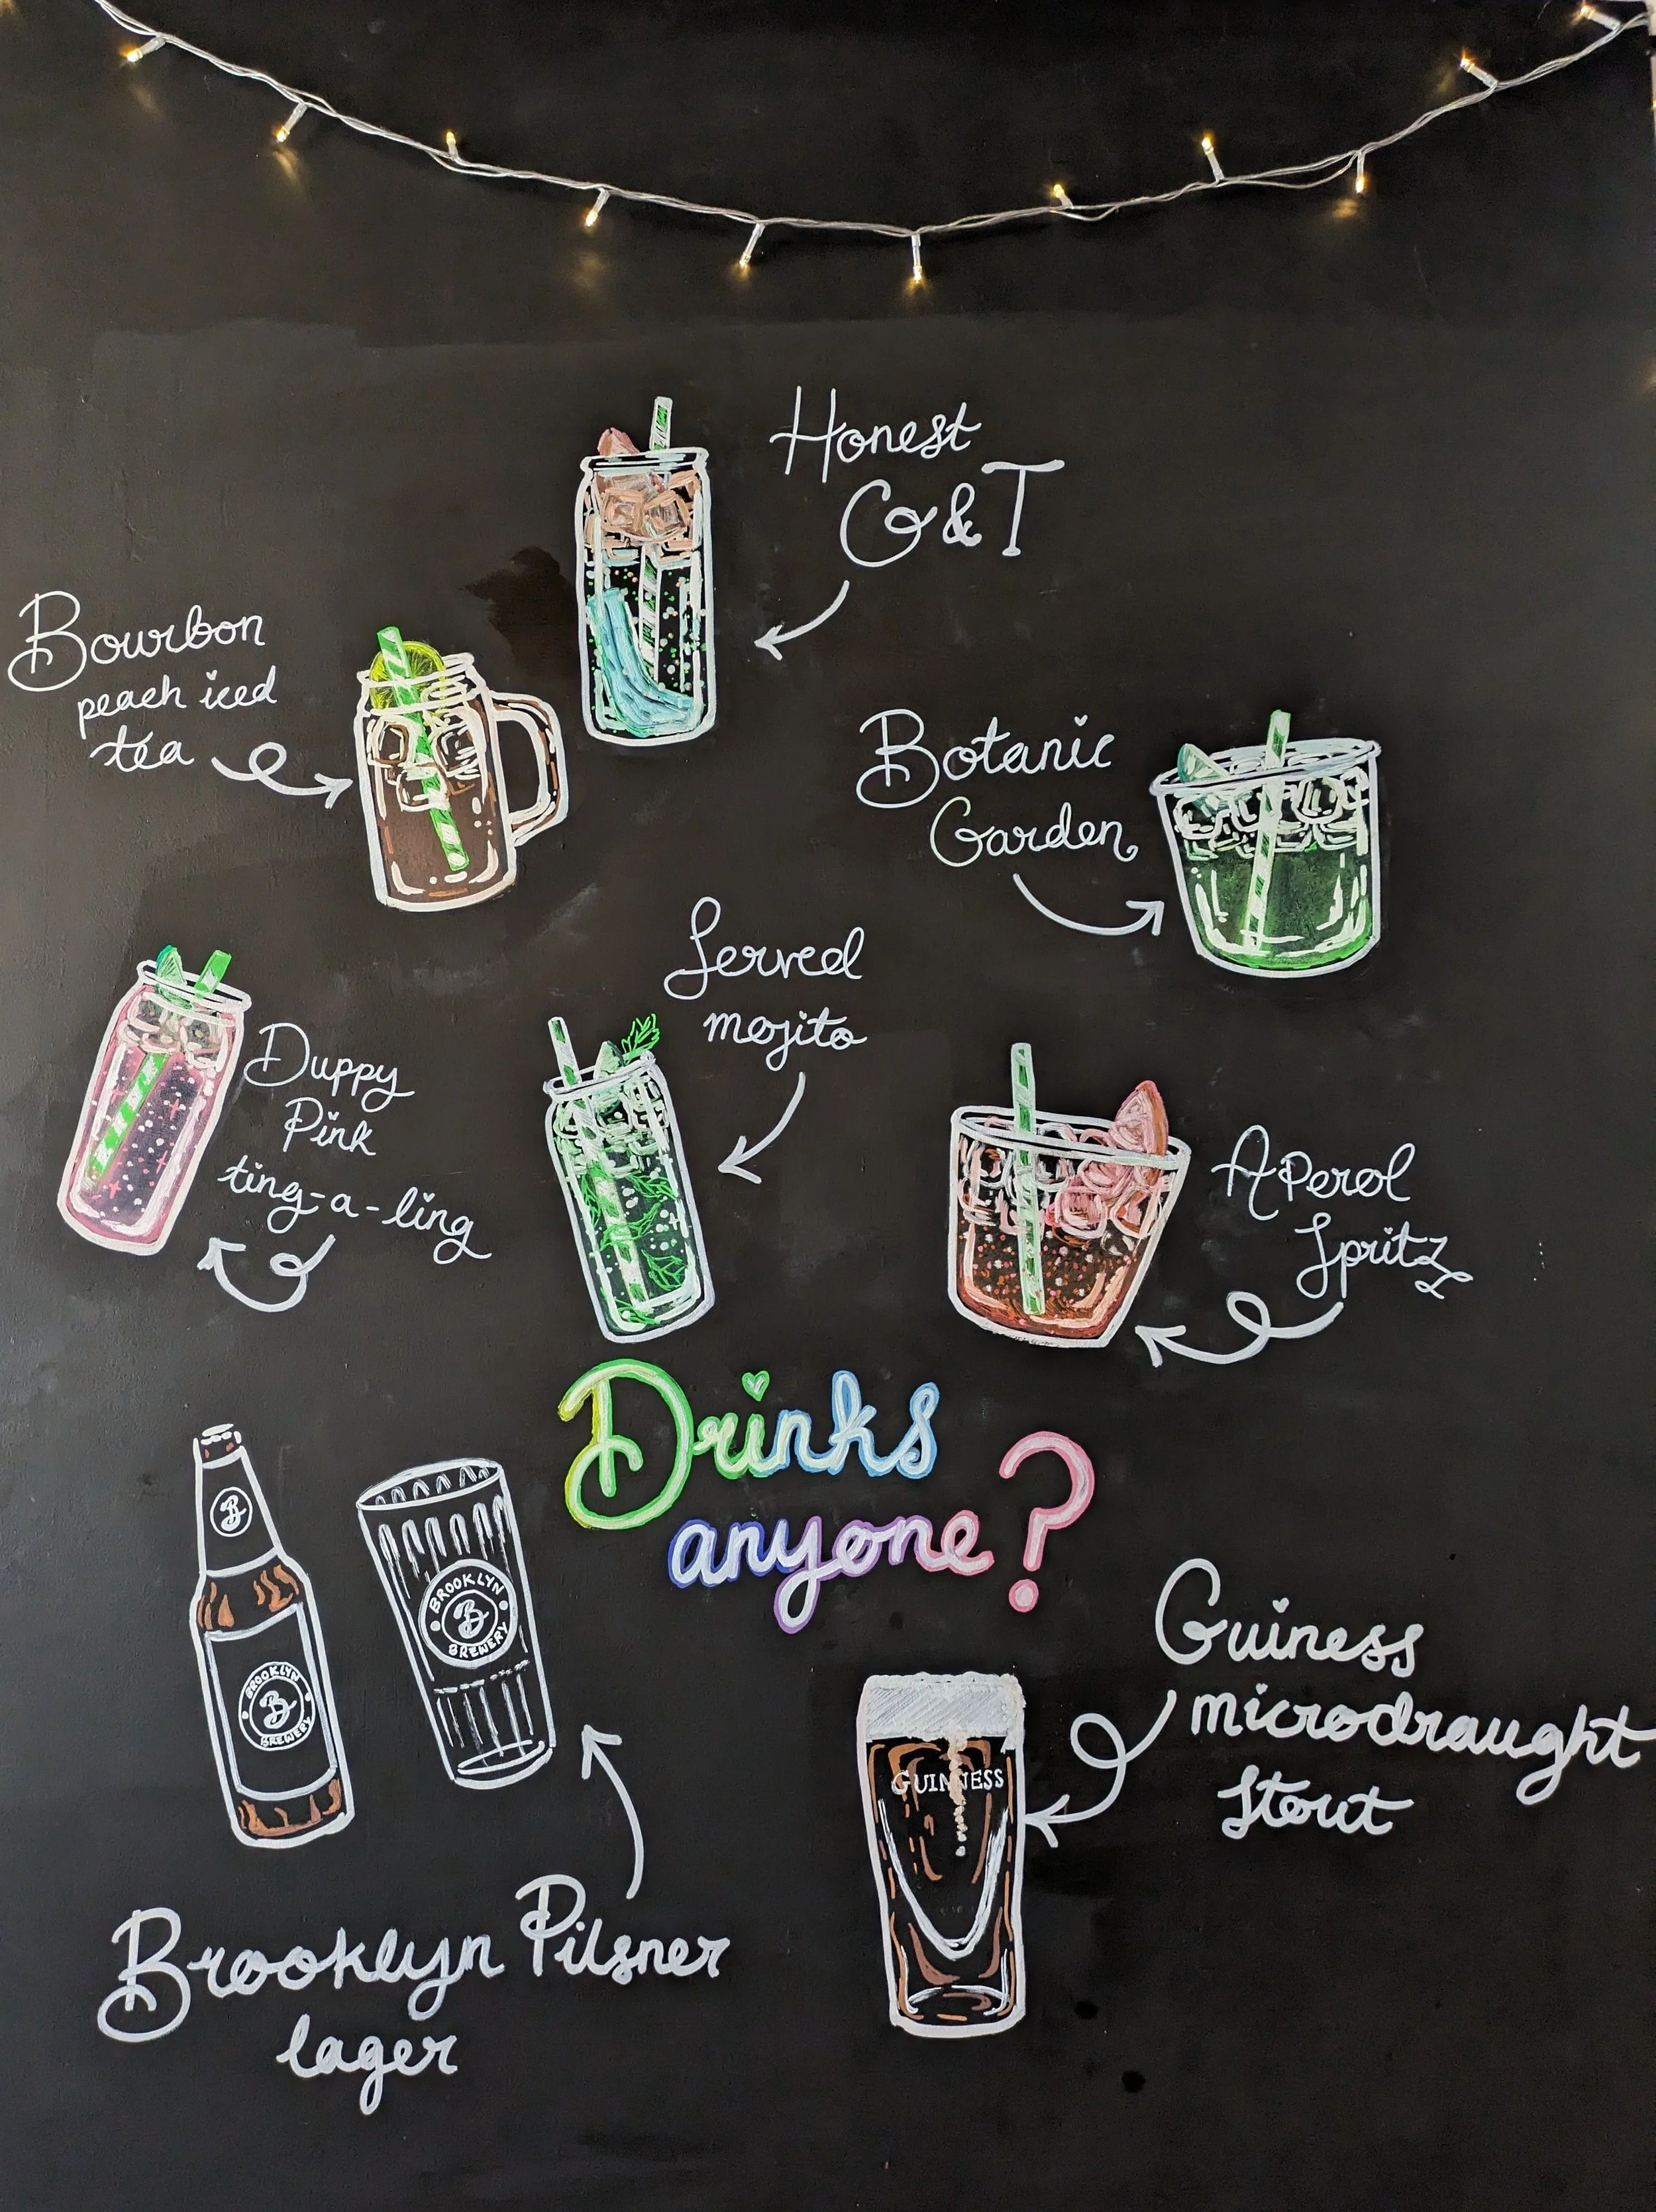 Honest
G&T
Bourbon
peach iced
tea
Botanic
Garden
Served
mojito
Duppy
Pink
ting-a-ling
Aperol
Spritz
Drinks
anyone?
B
BROOKLYN
B
BREWERY
BROOKLYN
B
BREWERY
Guiness
microdraught
Stout
GUINNESS
Brooklyn Pilsner
lager